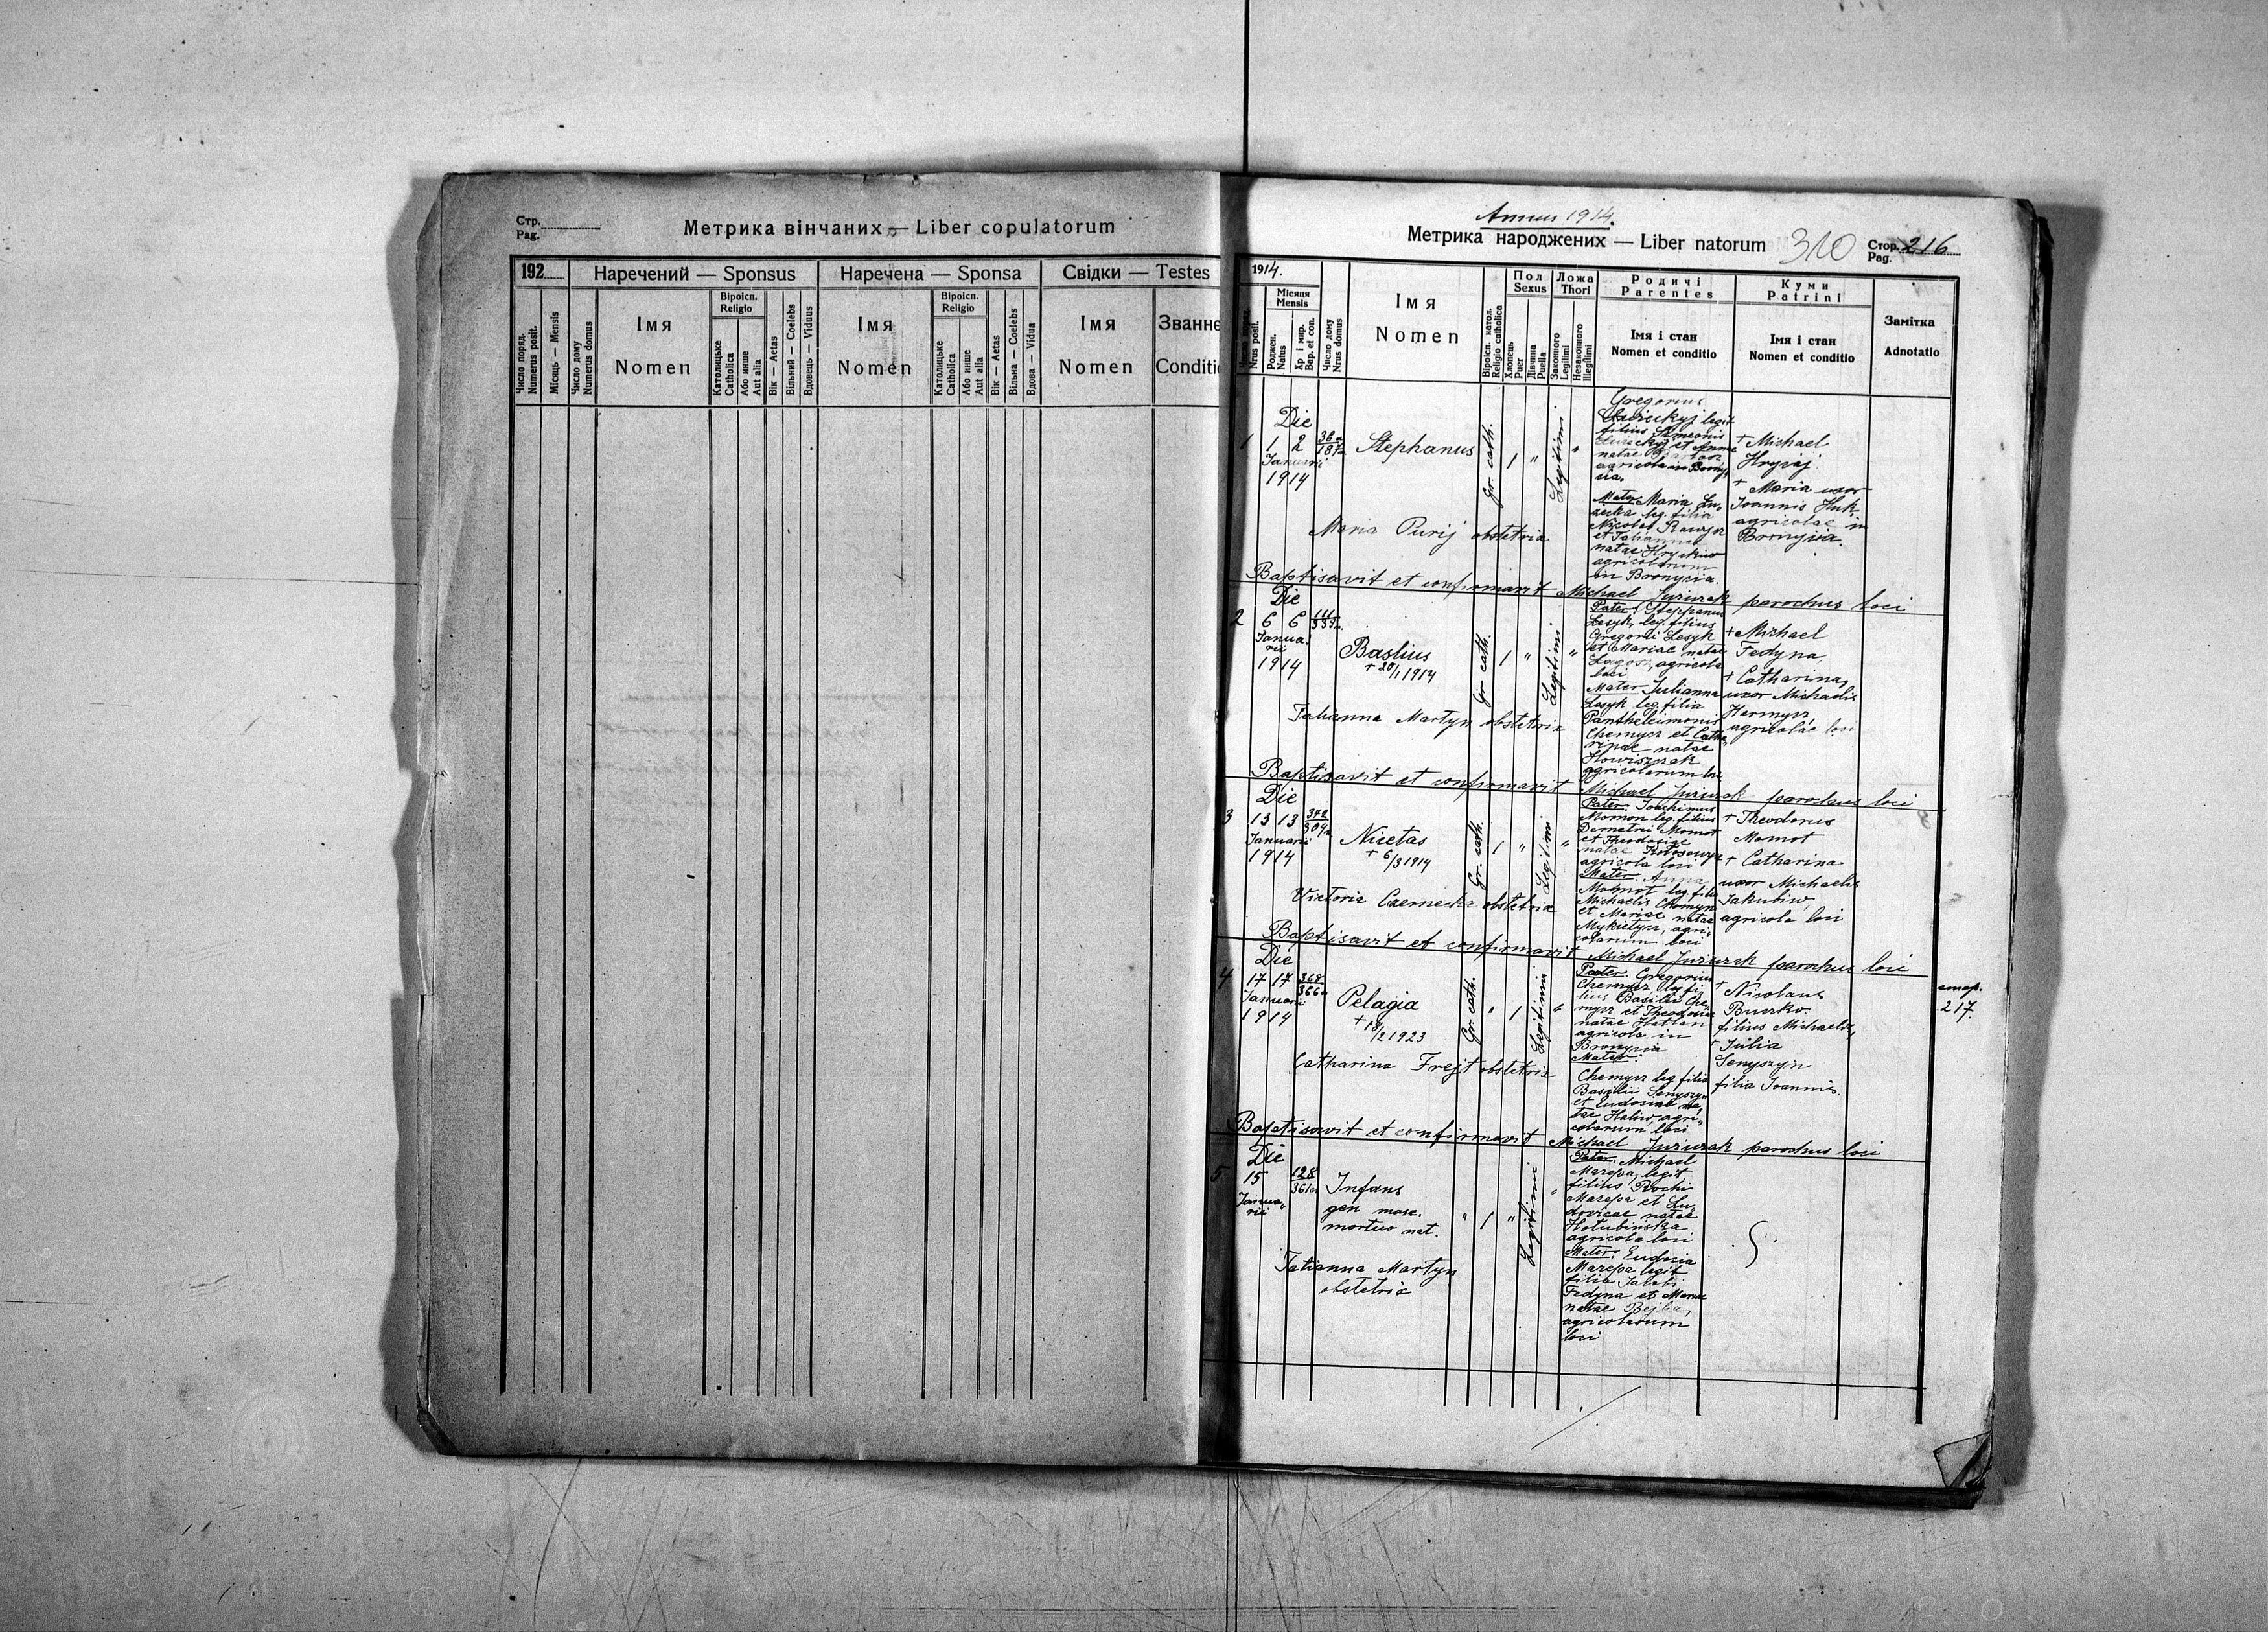 Стр.
Pag.
Метрика вінчаних — Liber copulatorum
192
Наречений — Sponsus
Наречена — Sponsa
Свідки — Testes
Число поряд.
Numerus posit.
Місяць — Mensis
Число дому
Numerus domus
Імя
Nomen
Віроісп.
Religio
Католицьке
Catholica
Або инше
Aut alia
Вік — Aetas
Вільний — Coelebs
Вдовець — Viduus
Імя
Nomen
Віроісп.
Religio
Католицьке
Catholica
Або инше
Aut alia
Вік — Aetas
Вільна — Coelebs
Вдова — Vidua
Імя
Nomen
Званнє
Conditi
Annus 1914.
Метрика народжених — Liber natorum
310
Стор. 216
Pag.
1914.
Nrus posit.
Місяця
Mensis
Роджен.
Natus
Хр і мир.
Bap. et con.
Число дому
Nrus domus
Імя
Nomen
Віроісп. катол.
Religio catholica
Пол
Sexus
Хлопець
Puer
Дівчина
Puella
Ложа
Thori
Законного
Legitimi
Незаконного
Illegitimi
Родичі
Parentes
Імя і стан
Nomen et conditio
Куми
Patrini
Імя і стан
Nomen et conditio
Замітка
Adnotatio
Die
1 1 2
Januarii
1914
Stephanus
Gr. cath.
1 "
Legitimi
"
Gregorius
legit
filius Simeonis
et Annae
natae
agricola in Brony
cia.
Mater Maria
leg. filia
Nicolai
et Tatiannae
natae Hryckiw
agricolarum
in Bronycia.
+ Michael
+ Maria uxor
Joannis Huk
agricolae in
Bronycia.
Maria Purij obstetrix
Baptisavit et confirmavit Michael Jurczak parochus loci
Die
2 6 6
Janua-
rii
1914
Basilius
+ 20/1 1914
Gr. cath.
1 "
Legitimi
"
Pater: Stephanus
Lesyk, leg. filius
Gregorii Lesyk
et Mariae natae
agricola
loci
Mater Julianna
Lesyk leg. filia
Pantheleimonis
Chemycz et Catha-
rinae natae
Howiszczak
agricolarum loci
+ Michael
Fedyna
+ Catharina,
uxor Michaelis
agricolae loci
Tatianna Martyn obstetrix
Baptisavit et confirmavit Michael Jurczak parochus loci
Die
3 13 13
Januarii
1914
Nicetas
+ 6/3 1914
Gr. cath.
1 "
Legitimi
"
Pater: Joachimus
Momot leg. filius
Demetrii Momot
et Theodosiae
natae
agricola loci
Mater: Anna
Momot leg. filia
Michaelis Chomyn
et Mariae natae
Mykietycz, agri-
colarum loci
+ Theodorus
Momot
+ Catharina
uxor Michaelis
Jakubiw,
agricola loci
Victoria Czernecka obstetrix
Baptisavit et confirmavit Michael Jurczak parochus loci
Die
4 17 17
Januarii
1914
Pelagia
+ 18/2 1923
Gr. cath.
" 1
Legitimi
"
Pater: Gregorius
Chemycz leg fi-
lius Basilii Che-
mycz et Theodosiae
natae
agricola in
Bronycia
Mater:
Chemycz leg filia
Basilii Senyszyn
et Eudosiae na-
tae Haliw, agri-
colarum loci
+ Nicolaus
Buczko
filius Michaelis,
+ Julia
Senyszyn
filia Joannis
стор.
217.
Catharina Frejt obstetrix
Baptisavit et confirmavit Michael Jurczak parochus loci
Die
5 15
128
361a
Janua-
rii
Infans
gen masc.
mortuo nat.
" 1 "
Legitimi
"
Pater: Michael
Mazepa, legit
filius Rochi
Mazepa et Lu-
dovicae natae
Hołubinska
agricola loci
Mater: Eudocia
Mazepa legit
filia Jacobi
Fedyna et Mariae
natae Bejba,
agricolarum
loci
Tatianna Martyn
obstetrix